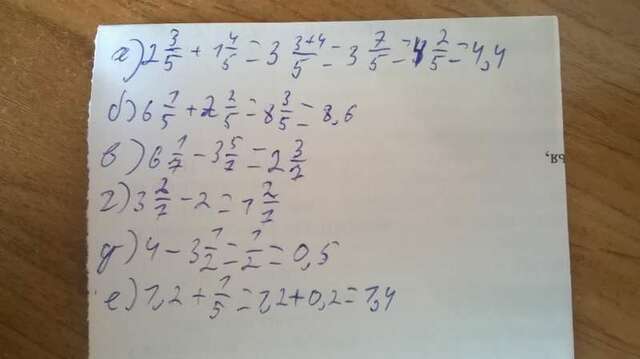 а) 2 3/5 + 1 4/5 = 3 3+4/5 = 3 7/5 = 4 2/5 = 4,4
б) 6 1/5 + 2 2/5 = 8 3/5 = 8,6
в) 6 1/7 - 3 5/7 = 2 3/7
г) 3 2/7 - 2 = 1 2/7
д) 4 - 3 1/2 = 1/2 = 0,5
е) 1,2 + 1/5 = 1,2 + 0,2 = 1,4
ья,